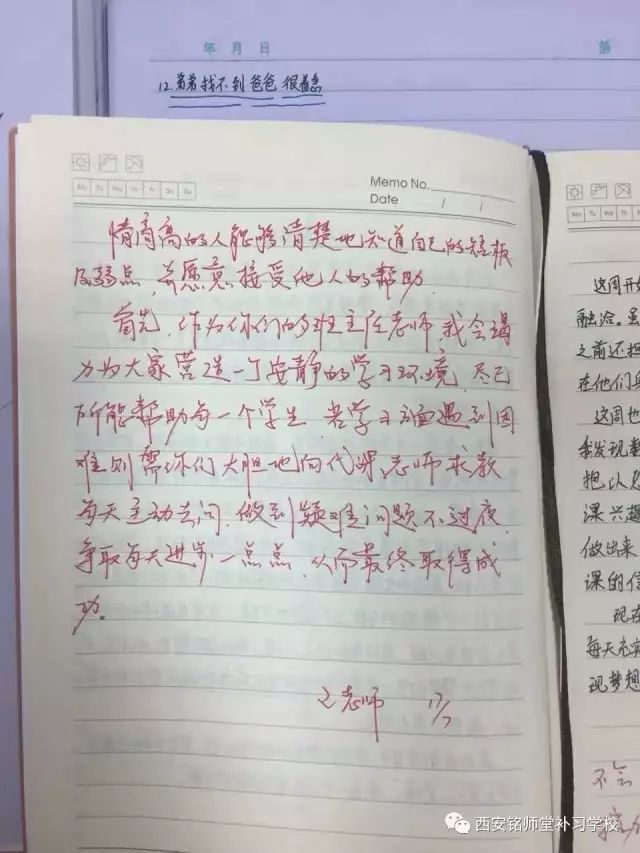 年 月 日
第
12.弟弟找不到爸爸 很着急
Memo No.
Mo Tu We Th Fr Sa Su
Date / /
情商高的人能够清楚地知道自己的短板
及弱点，并愿意接受他人的帮助.
首先，作为你们的班主任老师，我会竭
力为大家营造一个安静的学习环境，尽己
所能帮助每一个学生，若学习方面遇到困
难则需你们大胆地向代课老师求教
每天主动去问，做到疑难问题不过夜，
争取每天进步一点点，从而最终取得成
功。
王老师 17/7
这周开始
融洽。虽
之前还担
在他们身
这周也
我发现教
把认
课兴趣
做出来
课的信
现在
每天充实
现梦想
不会
西安铭师堂补习学校